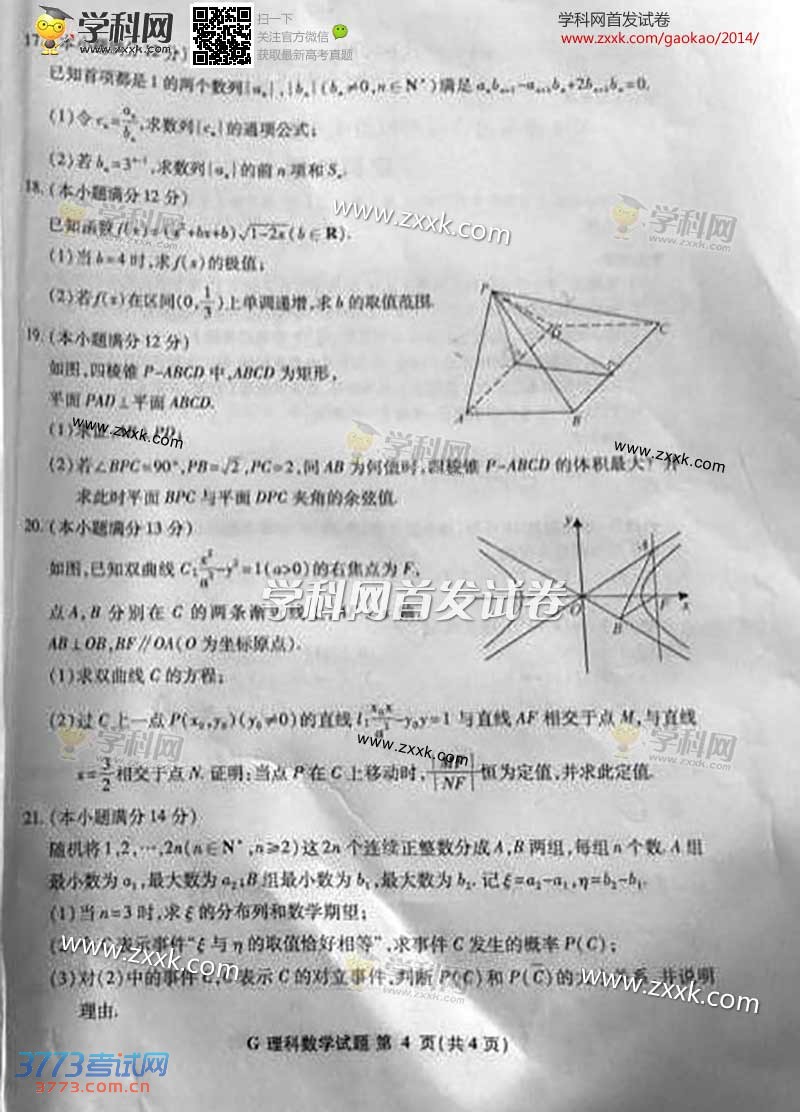 学科网 www.zxxk.com
扫一下
关注官方微信
获取最新高考真题
学科网首发试卷
www.zxxk.com/gaokao/2014/
17.
已知首项都是1的两个数列{aₙ},{bₙ}(bₙ≠0,n∈N*)满足aₙbₙ₊₁-aₙ₊₁bₙ+2bₙ₊₁bₙ=0.
(1)令cₙ=aₙ/bₙ,求数列{cₙ}的通项公式;
(2)若bₙ=3ⁿ⁻¹,求数列{aₙ}的前n项和Sₙ.
18.(本小题满分12分)
已知函数f(x)=(x²+bx+b)√1-2x(b∈R).
(1)当b=4时,求f(x)的极值;
(2)若f(x)在区间(0,1/3)上单调递增,求b的取值范围.
19.(本小题满分12分)
如图,四棱锥P-ABCD中,ABCD为矩形,
平面PAD⊥平面ABCD.
(1)求
(2)若∠BPC=90°,PB=√2,PC=2,问AB为何值时,四棱锥P-ABCD的体积最大?
求此时平面BPC与平面DPC夹角的余弦值.
P
C
A
B
20.(本小题满分13分)
如图,已知双曲线C:x²/a²-y²=1(a>0)的右焦点为F,
点A,B分别在C的两条渐
AB⊥OB,BF∥OA(O为坐标原点).
(1)求双曲线C的方程;
(2)过C上一点P(x₀,y₀)(y₀≠0)的直线l:x₀x/a²-y₀y=1与直线AF相交于点M,与直线
x=3/2相交于点N.证明:当点P在C上移动时,|NF|恒为定值,并求此定值.
y
A
O
F
x
B
21.(本小题满分14分)
随机将1,2,…,2n(n∈N*,n≥2)这2n个连续正整数分成A,B两组,每组n个数.A组
最小数为a₁,最大数为a₂;B组最小数为b₁,最大数为b₂.记ξ=a₂-a₁,η=b₂-b₁.
(1)当n=3时,求ξ的分布列和数学期望;
表示事件“ξ与η的取值恰好相等”,求事件C发生的概率P(C);
(3)对(2)中的事件C,C̄表示C的对立事件,判断P(C)和P(C̄)的 系,并说明
理由.
G 理科数学试题 第 4 页(共4页)
www.zxxk.com
学科网首发试卷
3773考试网
3773.com.cn